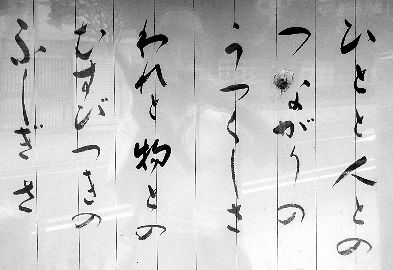 ひとと人との
つながりの
うつくしさ
われと物との
むすびつきの
ふしぎさ